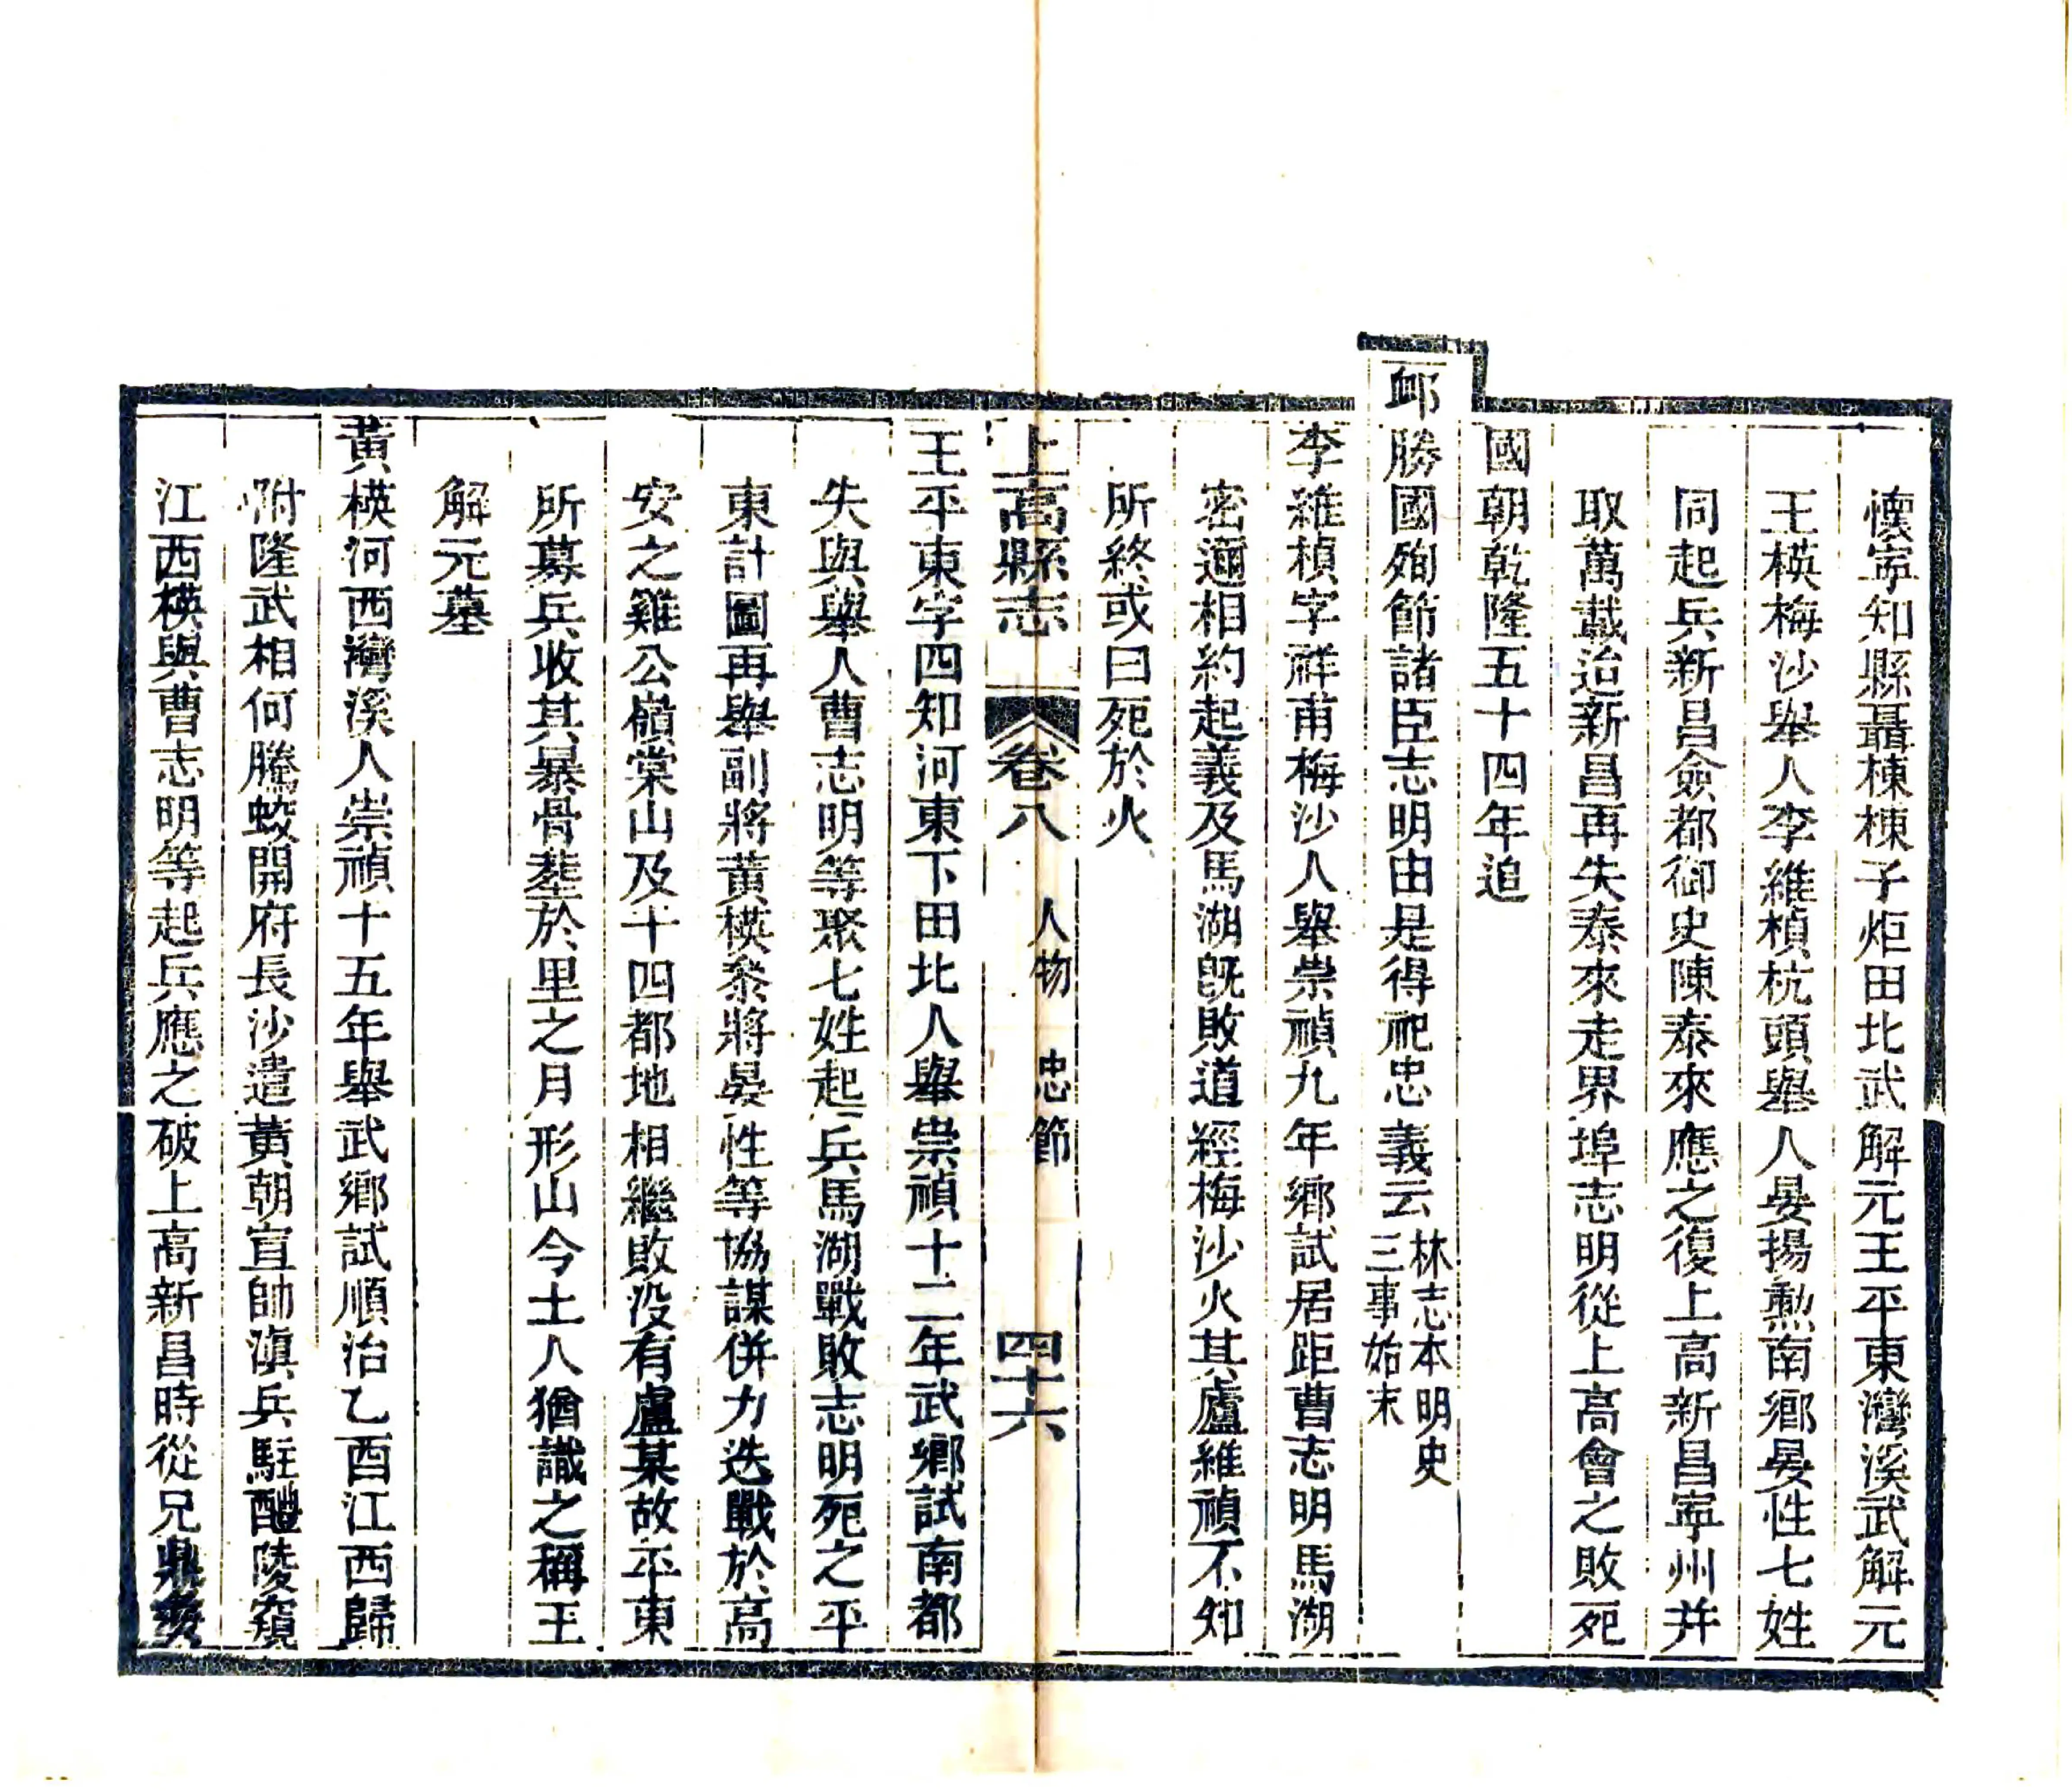 懷寧知縣聶棟棟子炬田北武解元王平東灣溪武解元
王楧梅沙舉人李維楨杭頭舉人晏揚勲南鄉晏性七姓
同起兵新昌僉都御史陳泰來應之復上高新昌寧州并
取萬載迨新昌再失泰來走界埠志明從上高會之敗死
國朝乾隆五十四年追
卹勝國殉節諸臣志明由是得祀忠義云林志本明史
三事始末
李維楨字祥甫梅沙人舉崇禎九年鄉試居距曹志明馬湖
密邇相約起義及馬湖旣敗道經梅沙火其廬維禎不知
所終或曰死於火
上高縣志 卷八 人物 忠節 四十六
王平東字四知河東下田北人舉崇禎十二年武鄉試南都
失與舉人曹志明等聚七姓起兵馬湖戰敗志明死之平
東計圖再舉副將黃楧叅將晏性等協謀併力迭戰於高
安之雞公嶺棠山及十四都地相繼敗没有盧某故平東
所募兵收其暴骨塟於里之月形山今土人猶識之稱王
解元墓
黃楧河西灣溪人崇禎十五年舉武鄉試順治乙酉江西歸
附隆武相何騰蛟開府長沙遣黃朝宣帥滇兵駐醴陵窺
江西楧與曹志明等起兵應之破上高新昌時從兄鼎